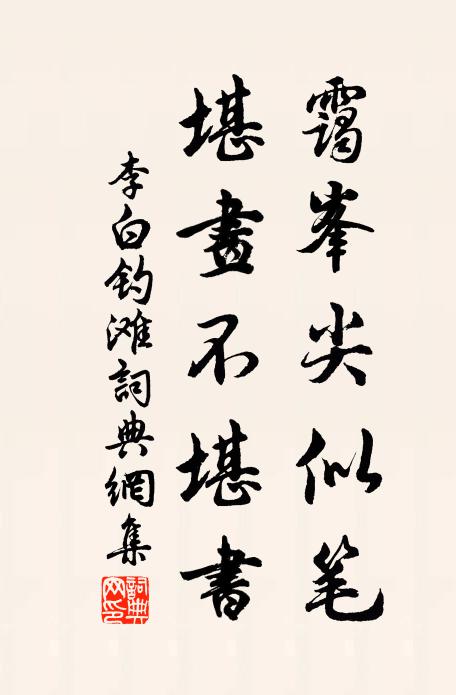 靄峯尖似笔
堪畫不堪書
李白钓滩詞典網集
詞典网印